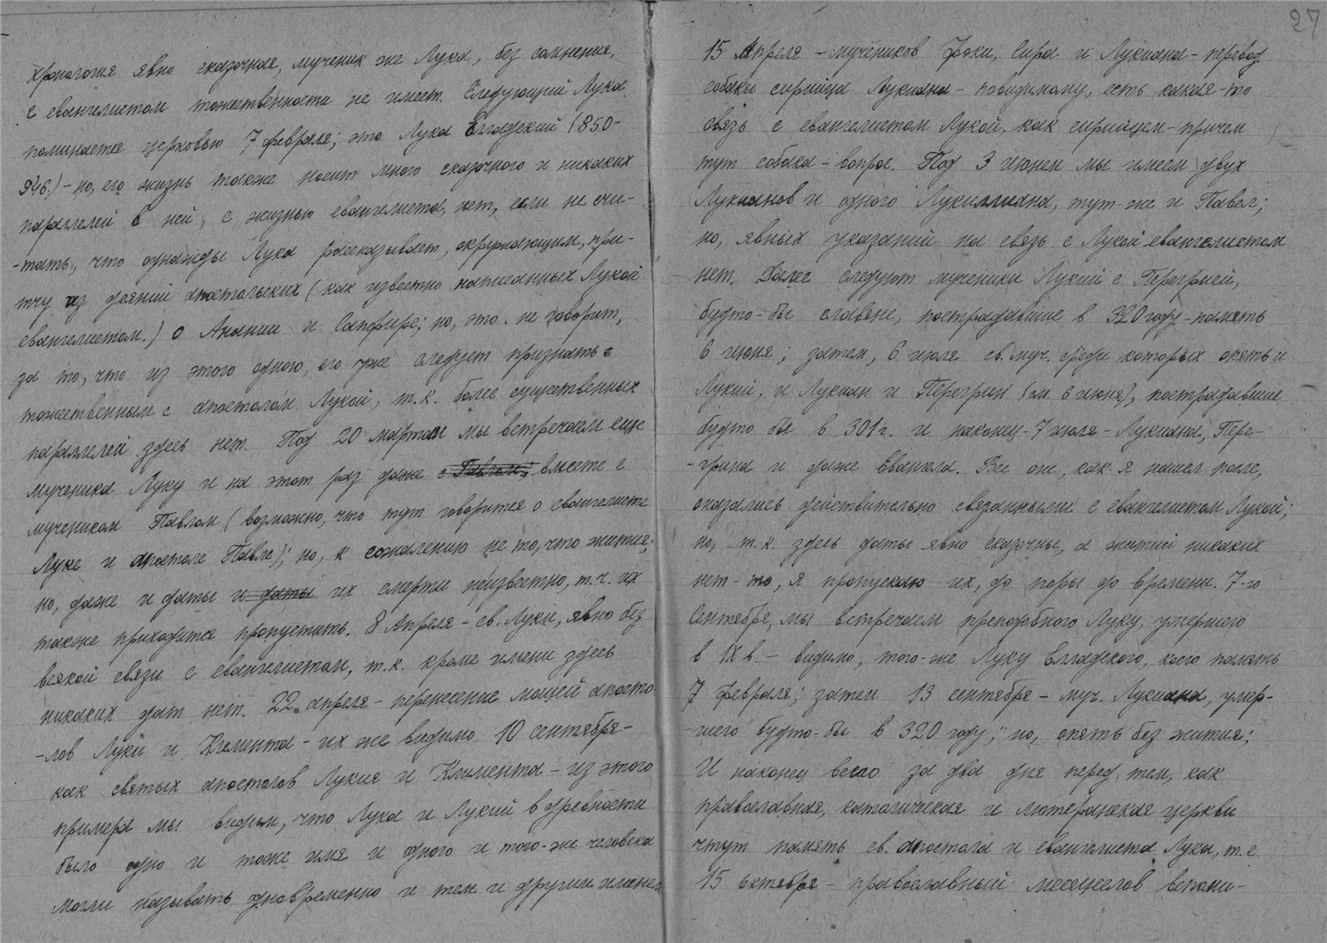 хронология явно сказочная, мученик же Лука, без сомнения,
с евангелистом тожественности не имеет. Следующий Лука
поминается церковью 7 февраля; это Лука Елладский (850-
946.) - но, его жизнь также носит много сказочного и никаких
параллелей в ней, с жизнью евангелиста, нет, если не счи-
-тать, что однажды Лука рассказывает, окружающим, при-
тчу из деяний апостольских (как известно написанных Лукой
евангелистом.) о Анании и Сапфире; но, это не говорит,
за то, что из этого одного, его уже следует признать
тожественным с апостолом Лукой, т.к. более существенных
параллелей здесь нет. Под 20 марта мы встречаем еще
мученика Луку и на этот раз даже с Павлом, вместе с
мучеником Павлом (возможно, что тут говорится о евангелисте
Луке и апостоле Павле); но, к сожалению не то, что житие,
но, даже и даты и даты их смерти неизвестно, т.ч. их
также приходится пропустить. 8 Апреля - св. Луки, явно без
всякой связи с евангелистом, т.к. кроме имени здесь
никаких дат нет. 22 апреля - перенесение мощей апосто-
-лов Луки и Климента - их же видимо 10 сентября -
как святых апостолов Лукия и Климента - из этого
примера мы видим, что Лука и Лукий в древности
было одно и тоже имя и одного и того-же человека
могли называть одновременно и тем и другим именем
27
15 Апреля - мучеников Фоки, Сира и Лукиана - перевод
собаки сирийца Лукиана - повидимому, есть какая-то
связь с евангелистом Лукой, как сирийцем - причем
тут собака - вопрос. Под 3 июнем мы имеем двух
Лукианов и одного Лукиллиана, тут-же и Павел;
но, явных указаний на связь с Лукой евангелистом
нет. Далее следуют мученики Лукий с Перегрией,
будто-бы славяне, пострадавшие в 320 году - память
6 июня; затем, 6 июля св. муч. среди которых опять и
Лукий, и Лукиан и Перегрин (см. 6 июня), пострадавшие
будто бы в 301 г. и наконец - 7 июля - Лукиана, Пере-
-грина и даже Евангела. Все они, как я нашел после,
оказались действительно связанными с евангелистом Лукой;
но, т.к. здесь даты явно сказочны, а житий никаких
нет - то, я пропускаю их, до поры до времени. 7-го
Сентября, мы встречаем преподобного Луку, умершего
в IX в. - видимо, того-же Луку Елладского, коего память
7 февраля; затем 13 сентября - муч. Лукиана, умер-
-шего будто-бы в 320 году; но, опять без жития;
И наконец всего за два дня перед тем, как
православная, католическая и лютеранская церкви
чтут память св. апостола и евангелиста Луки, т.е.
15 октября - православный месяцеслов вспоми-